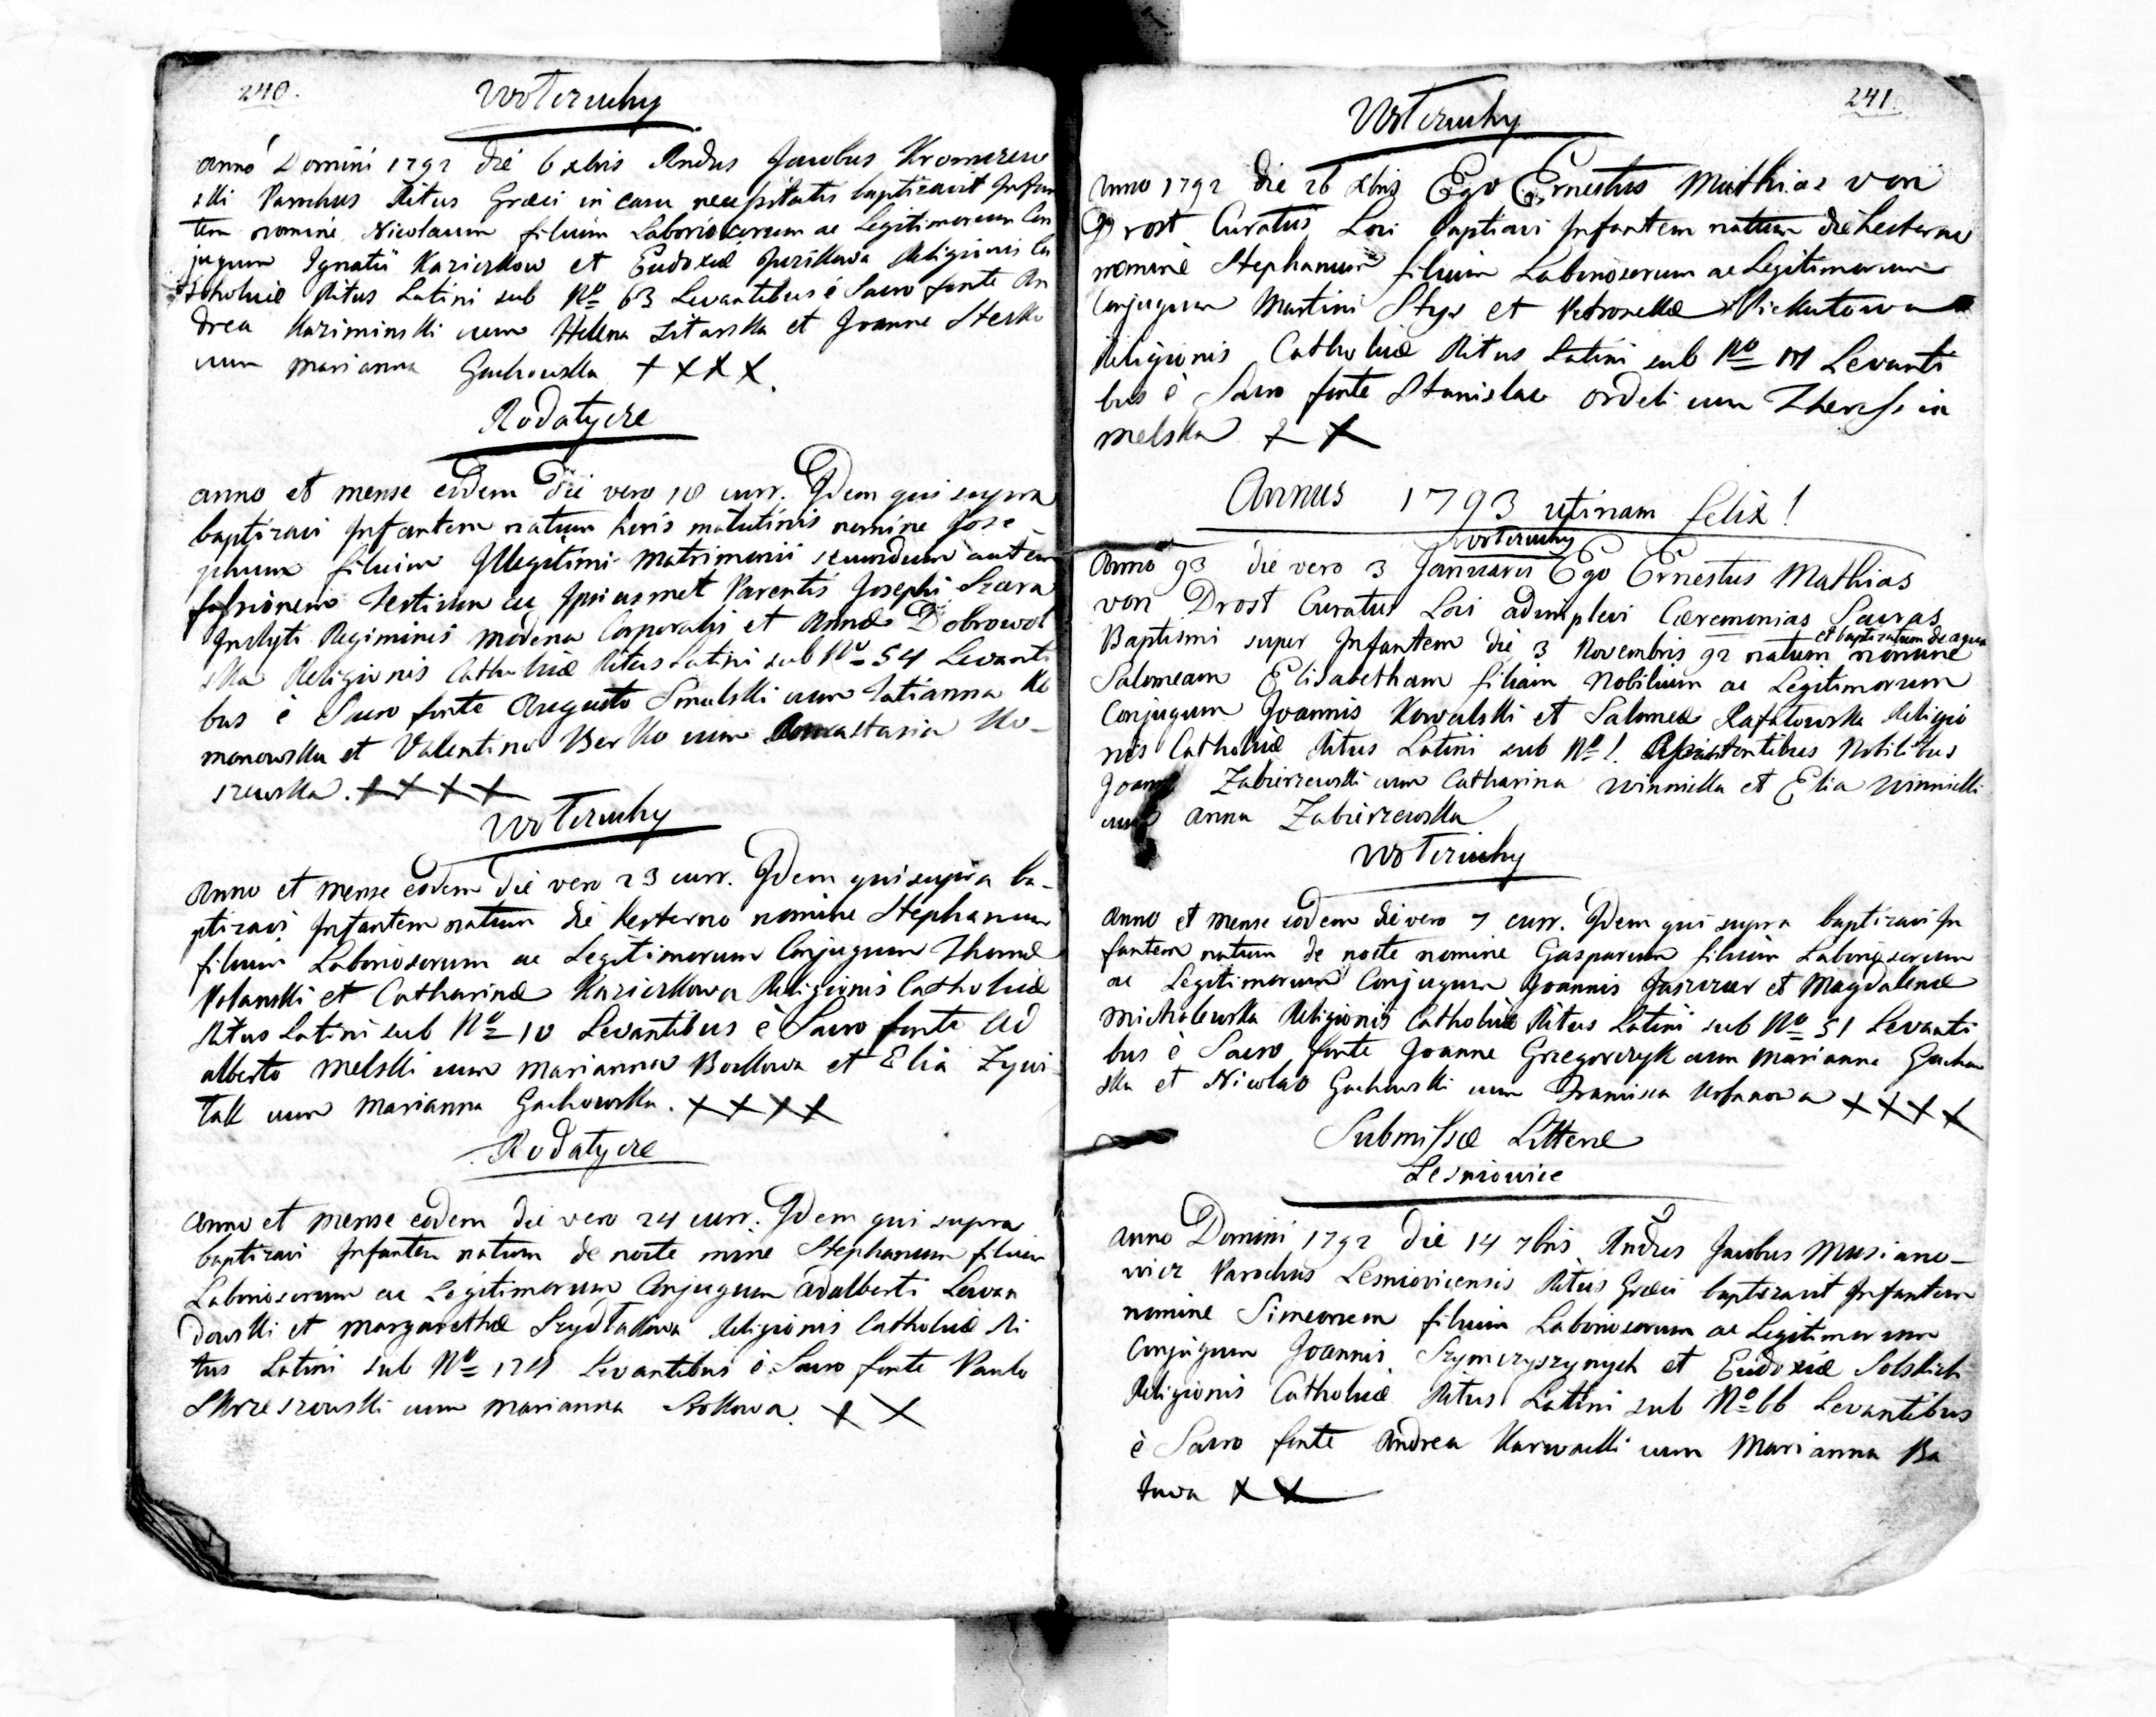 240.
Wotczuchy
Anno Domini 1792 die 6 xbris Rndus Jacobus
ski Parochus Ritus Græci in casu necessitatis baptizavit Infan
tem nomine Nicolaum filium Laboriosorum ac Legitimorum Con
jugum Ignatii et Eudoxiæ Religionis Ca
tholicæ Ritus Latini sub No 63 Levantibus è Sacro fonte An
drea Kaziminski cum Helena et Joanne
cum Marianna Gachowska + X X X.
Rodatycze
Anno et mense eodem Die vero 18 curr. Idem qui supra
baptizavi Infantem natum horis matutinis nomine Jose-
phum filium Illegitimi Matrimonii secundum autem
Ipsiusmet Parentis Josephi Szara
Inclyti Regiminis Modena Corporalis et Annæ Dobrowol
ska Religionis Catholicæ Ritus Latini sub No 54 Levanti
bus è Sacro fonte Augusto Smulski cum Tatianna Ro
manowska et Valentino Berko cum Anastasia Ko-
szewska. X X X X
Wotczuchy
Anno et mense eodem Die vero 23 curr. Idem qui supra ba-
ptizavi Infantem natum die hesterno nomine Stephanum
filium Laboriosorum ac Legitimorum Conjugum Thomæ
Polanski et Catharinæ Religionis Catholicæ
Ritus Latini sub No 10 Levantibus è Sacro fonte Ad
alberto Melski cum Marianna et Elia
cum Marianna Gachowska. X X X X
Rodatycze
Anno et mense eodem die vero 24 curr. Idem qui supra
baptizavi Infantem natum de nocte mine Stephanum filium
Laboriosorum ac Legitimorum Conjugum Adalberti Lewan
dowski et Margarethæ Religionis Catholicæ Ri
tus Latini sub No Levantibus è Sacro fonte Paulo
cum Marianna X X
241.
Wotczuchy
Anno 1792 die 26 xbris Ego Ernestus Mathias von
Drost Curatus Loci Baptiavi Infantem natum die hesterno
nomine Stephanum filium Laboriosorum ac Legitimorum
Conjugum Martini Styr et Petronellæ
Religionis Catholicæ Ritus Latini sub No Levanti
bus è Sacro fonte Stanislao cum Theressia
Melska X X
Annus 1793 utinam felix!
Wotczuchy
Anno 93 die vero 3 Januarii Ego Ernestus Mathias
von Drost Curatus Loci adimplevi Cæremonias Sacras
Baptismi super Infantem die 3 Novembris 92 natum et baptizatum de aqua nomine
Salomeam Elisabetham filiam Nobilium ac Legitimorum
Conjugum Joannis Kowalski et Salomeæ Rafatowska Religio
nis Catholicæ Ritus Latini sub No 1. Assistentibus Nobilibus
Joanne Zabierzewski cum Catharina Winnicka et Elia Winnicki
cum Anna Zabierzewska
Wotczuchy
Anno et mense eodem die vero 7 curr. Idem qui supra baptizavi In
fantem natum de nocte nomine Gasparum filium Laboriosorum
ac Legitimorum Conjugum Joannis et Magdalenæ
Michalewska Religionis Catholicæ Ritus Latini sub No 51 Levanti
bus è Sacro fonte Joanne Grzegorczyk cum Marianna Gachow
ska et Nicolao Gachowski cum Francisca X X X X
Submissæ Litteræ
Lesniowice
Anno Domini 1792 Die 14 7bris Rndus Jacobus Musiano-
wicz Parochus Lesniovicensis Ritus Græci baptizavit Infantem
nomine Simeonem filium Laboriosorum ac Legitimorum
Conjugum Joannis Szymczyszynych et Eudoxiæ Solskich
Religionis Catholicæ Ritus Latini sub No 66 Levantibus
è Sacro fonte Andrea Karwacki cum Marianna Ba
X X